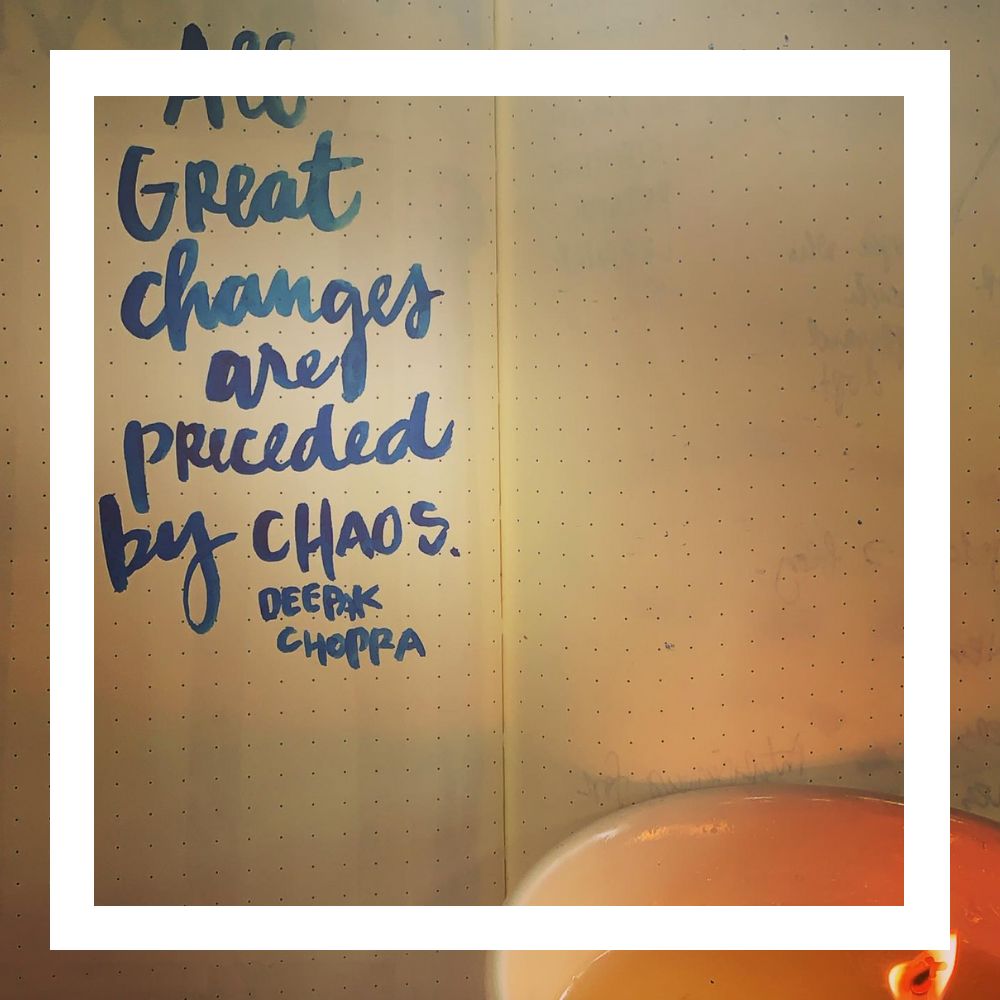 All
Great
changes
are
preceded
by CHAOS.
DEEPAK
CHOPRA